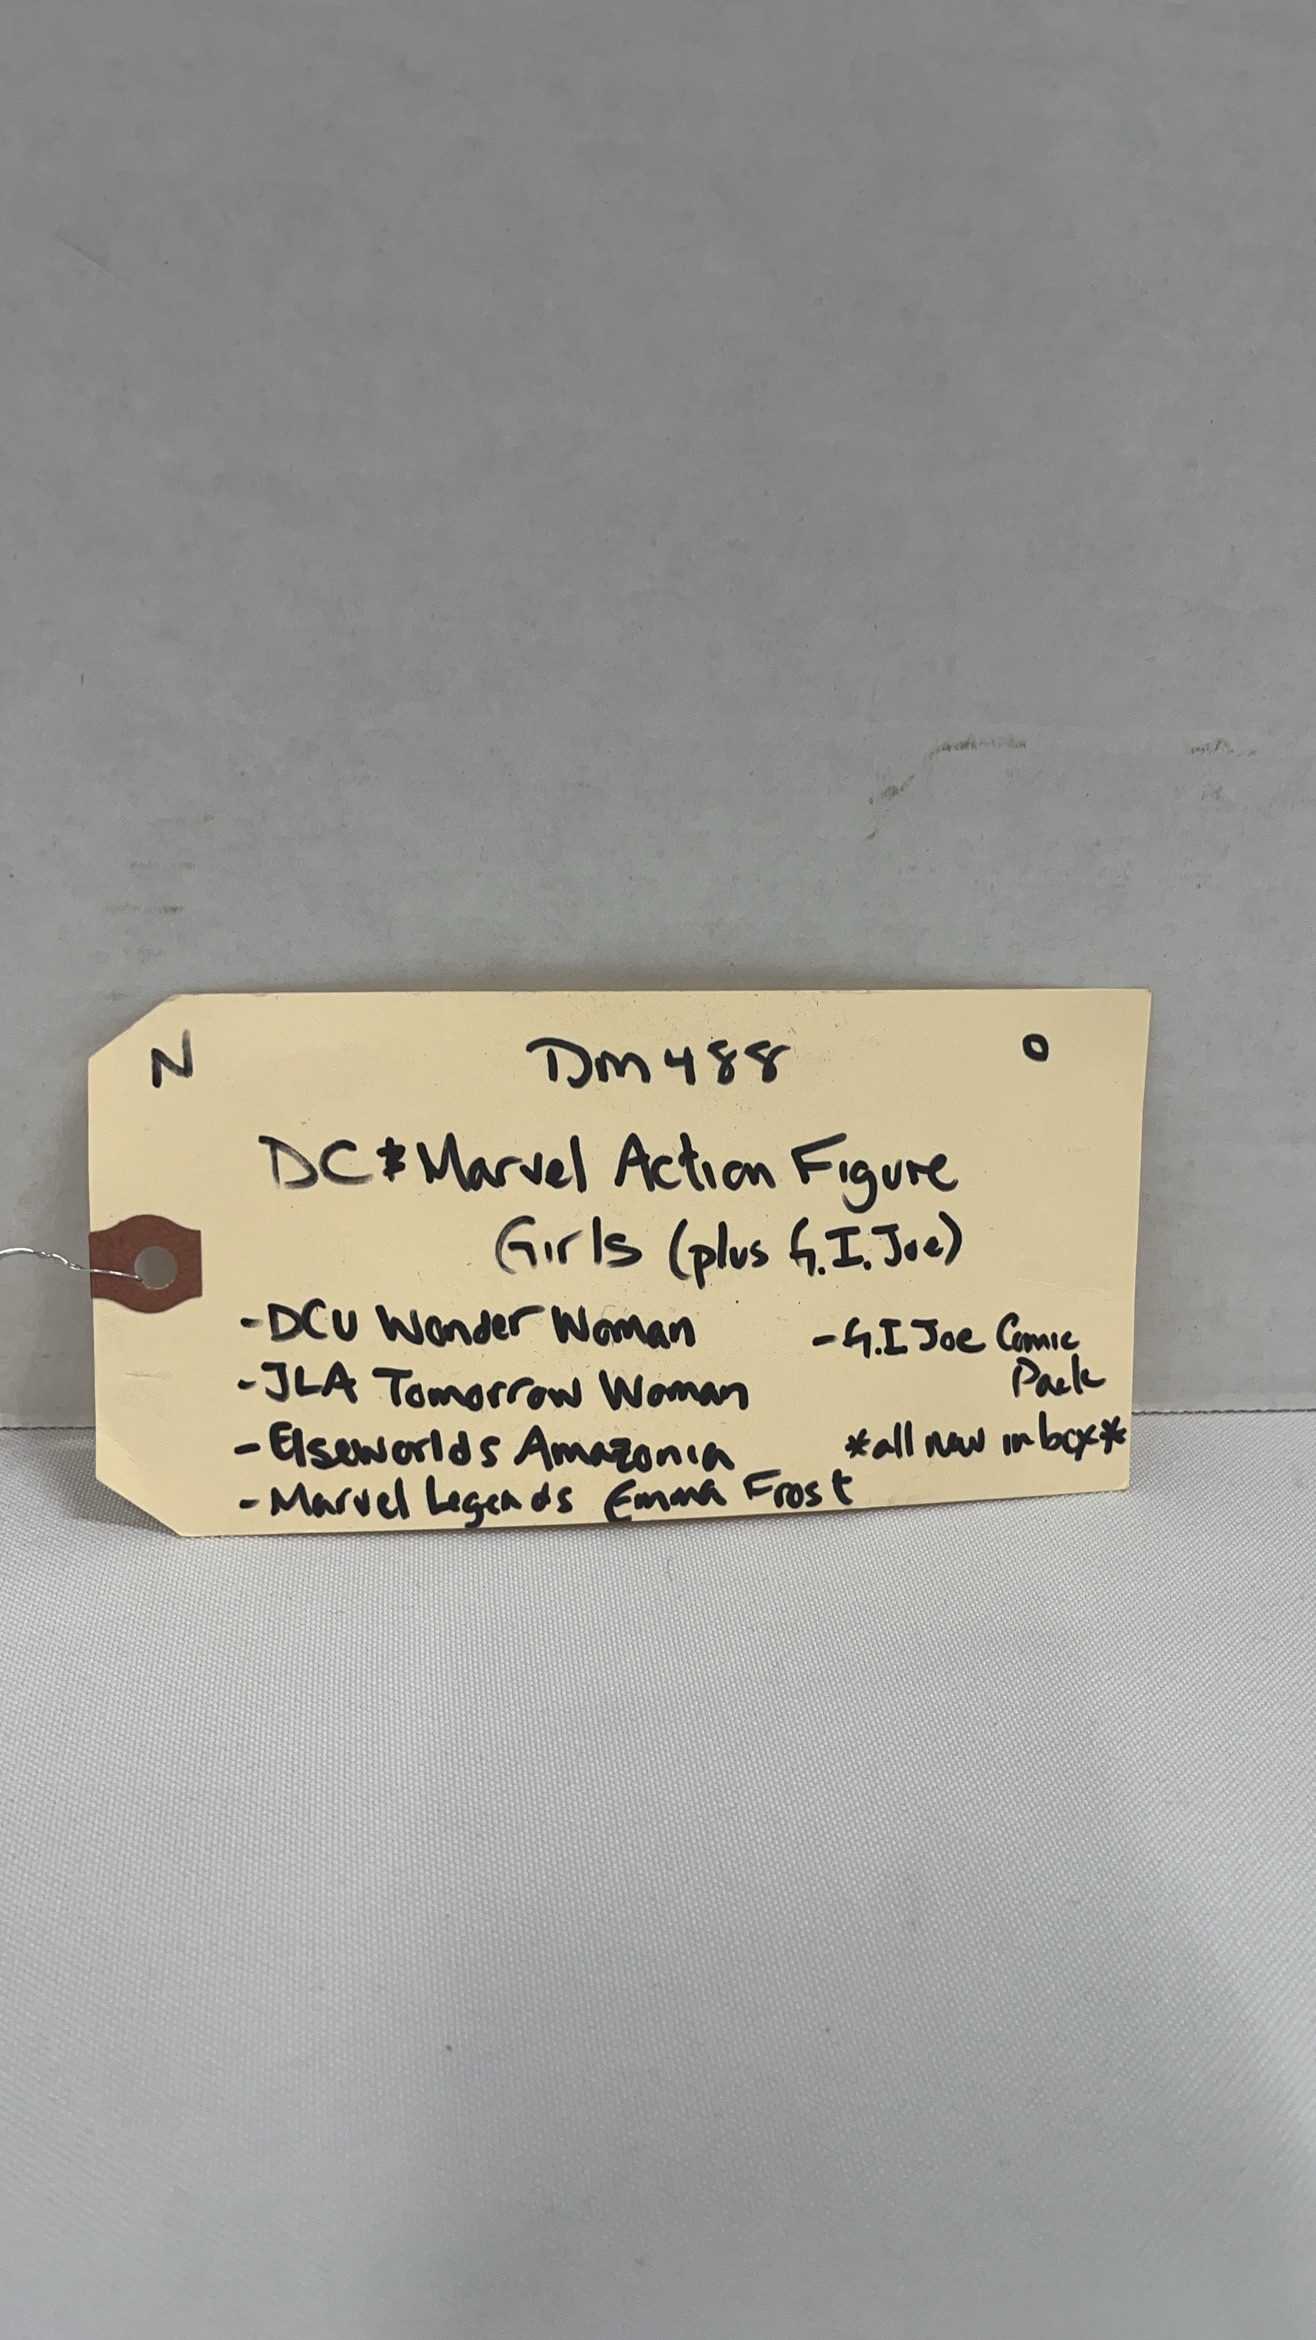 N Dm488 O
DC & Marvel Action Figure
Girls (plus G.I. Joe)
-DCU Wonder Woman
-JLA Tomorrow Woman
-Elseworlds Amazonia
-Marvel Legends Emma Frost
-G.I Joe Comic
Pack
*all new in box*